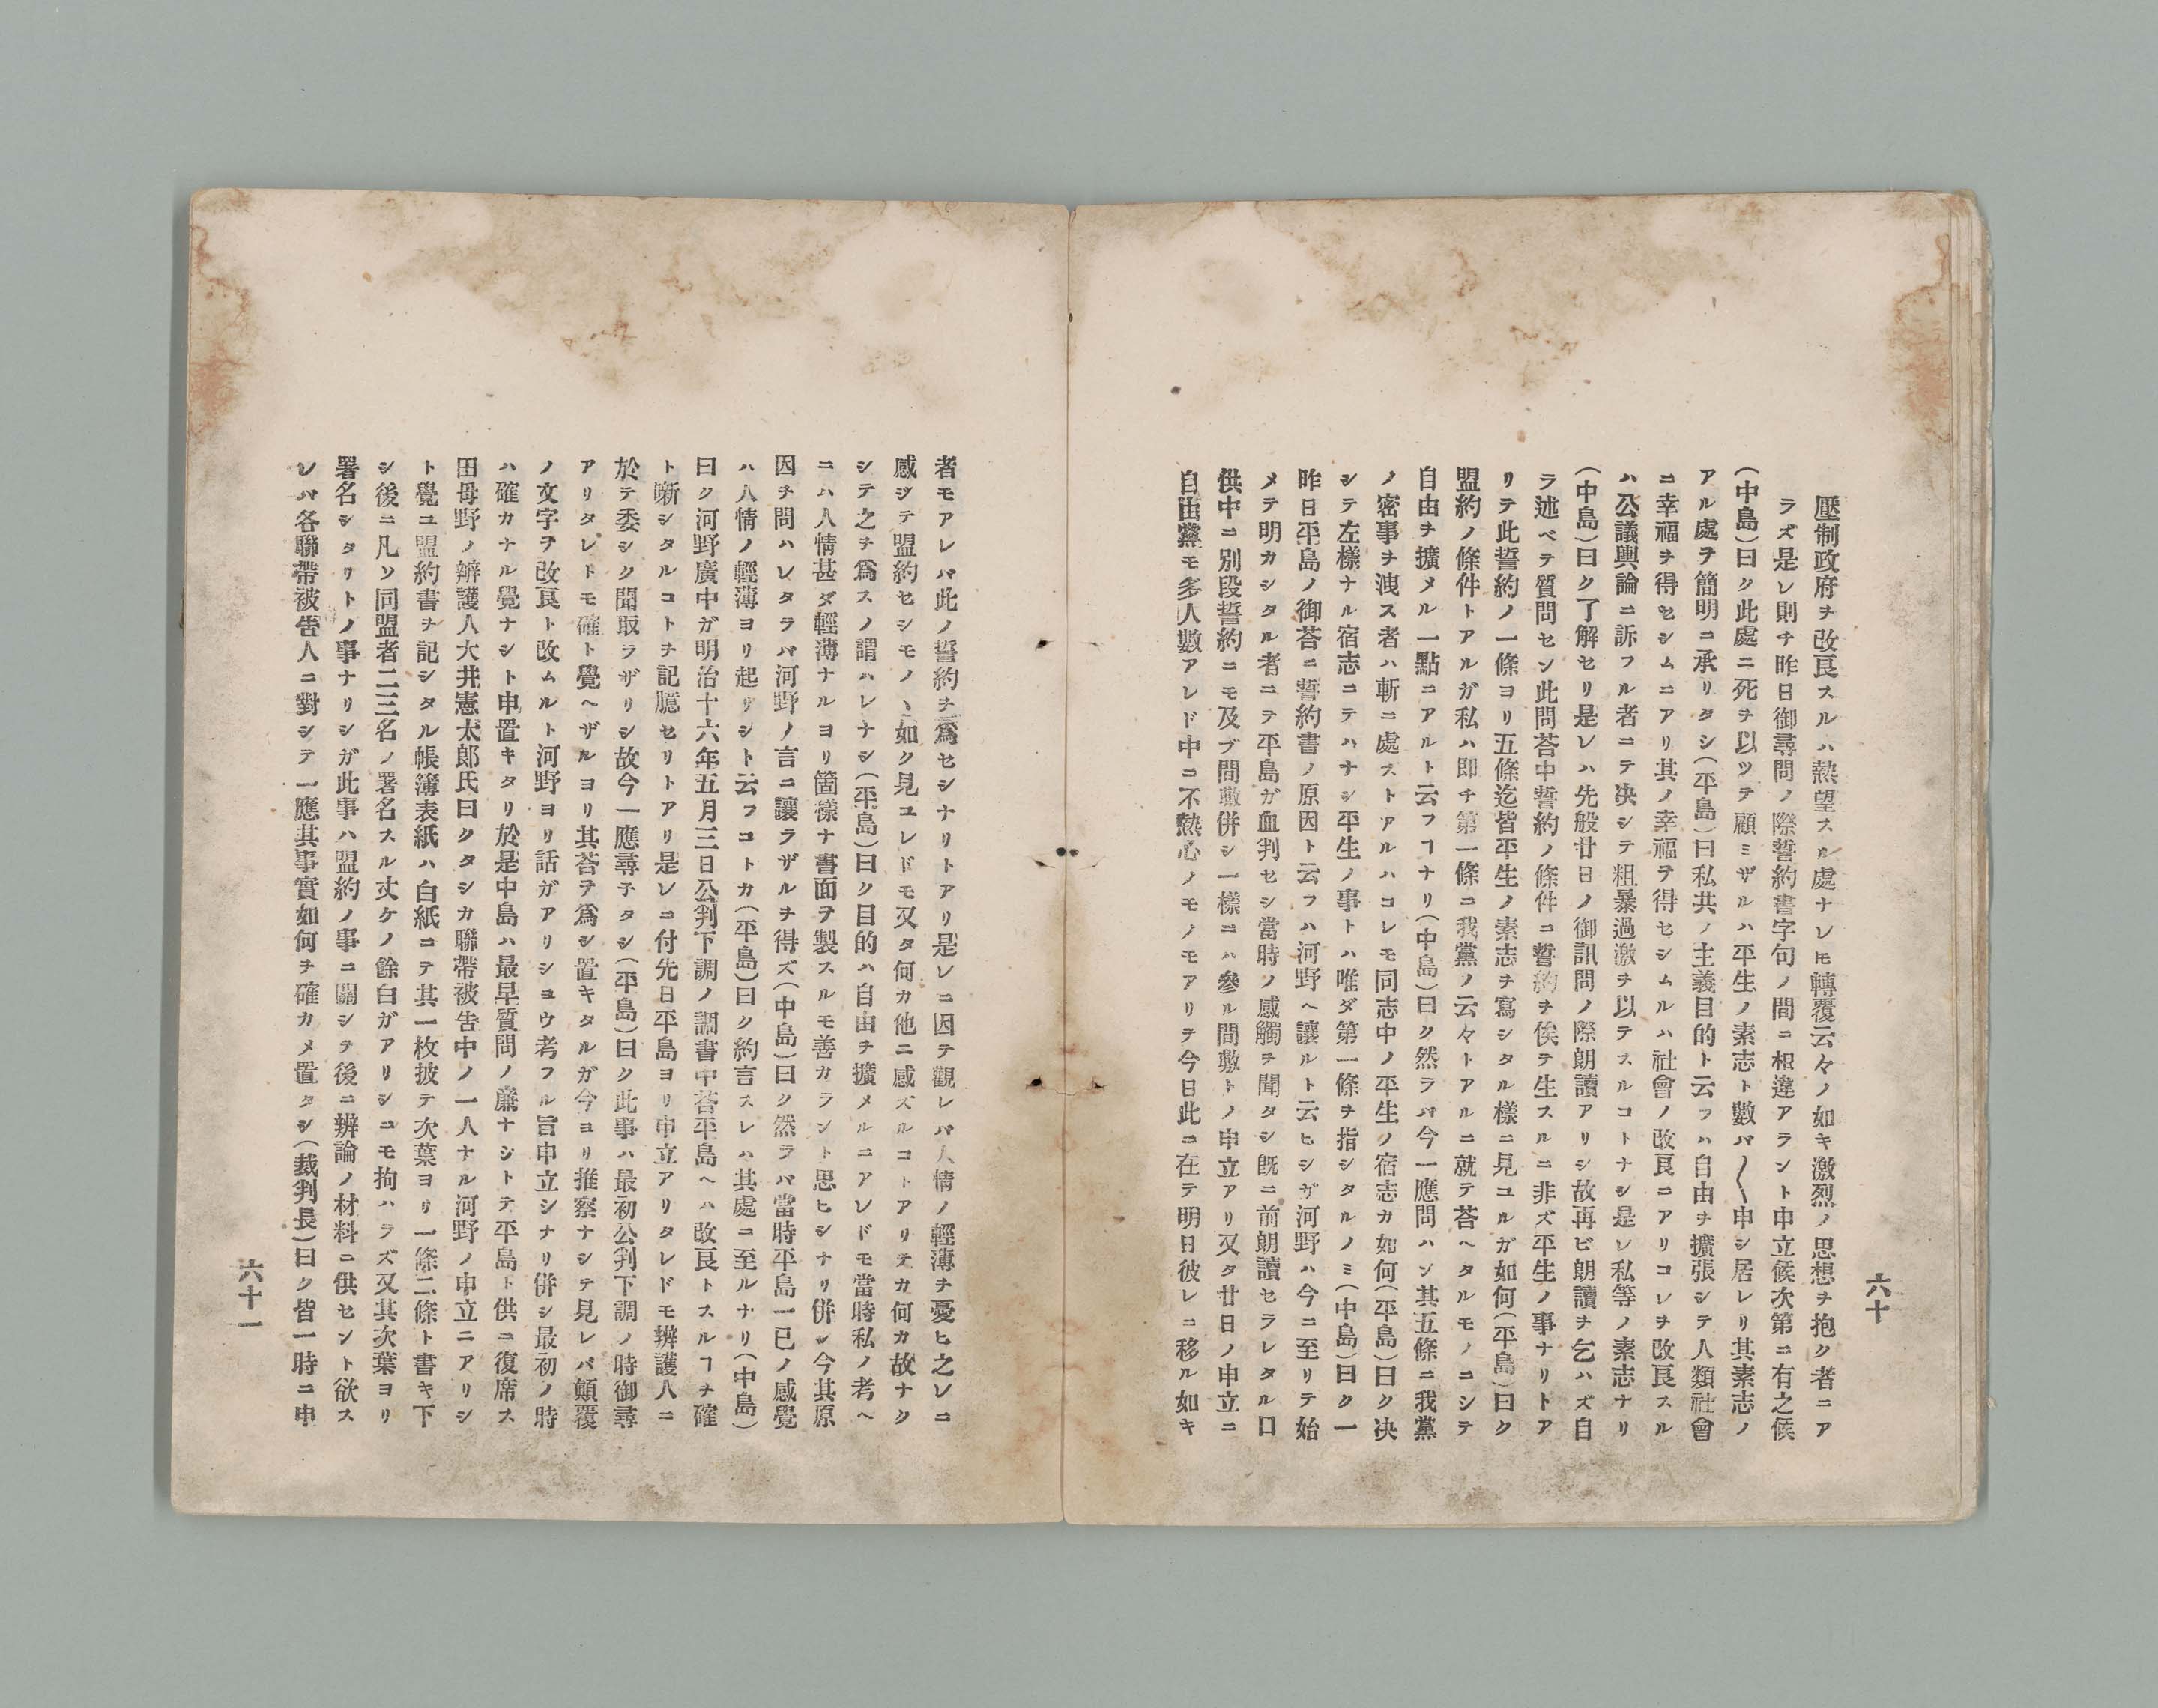 六十
壓制政府ヲ改良スルハ熱望スル處ナレ𪜈轉覆云々ノ如キ激烈ノ思想ヲ抱ク者ニア
ラズ是レ則チ昨日御尋問ノ際誓約書字句ノ間ニ相違アラント申立候次第ニ有之候
(中島)曰ク此處ニ死ヲ以ツテ顧ミザルハ平生ノ素志ト數バ〱申シ居レリ其素志ノ
アル處ヲ簡明ニ承リタシ(平島)曰私共ノ主義目的ト云フハ自由ヲ擴張シテ人類社會
ニ幸福ヲ得セシムニアリ其ノ幸福ヲ得セシムルハ社會ノ改良ニアリコレヲ改良スル
ハ公議輿論ニ訴フル者ニテ决シテ粗暴過激ヲ以テスルコトナシ是レ私等ノ素志ナリ
(中島)曰ク了解セリ是レハ先般廿日ノ御訊問ノ際朗讀アリシ故再ビ朗讀ヲ乞ハズ自
ラ述ベテ質問セン此問荅中誓約ノ條件ニ誓約ヲ俟テ生スルニ非ズ平生ノ事ナリトア
リテ此誓約ノ一條ヨリ五條迄皆平生ノ素志ヲ寫シタル樣ニ見ユルガ如何(平島)曰ク
盟約ノ條件トアルガ私ハ即チ第一條ニ我黨ノ云々トアルニ就テ荅ヘタルモノニシテ
自由ヲ擴メル一點ニアルト云フヿナリ(中島)曰ク然ラバ今一應問ハン其五條ニ我黨
ノ密事ヲ洩ス者ハ斬ニ處ストアルハコレモ同志中ノ平生ノ宿志カ如何(平島)曰ク决
シテ左樣ナル宿志ニテハナシ平生ノ事トハ唯ダ第一條ヲ指シタルノミ(中島)曰ク一
昨日平島ノ御荅ニ誓約書ノ原因ト云フハ河野ヘ讓ルト云ヒシガ河野ハ今ニ至リテ始
メテ明カシタル者ニテ平島ガ血判セシ當時ノ感觸ヲ聞タシ既ニ前朗讀セラレタル口
供中ニ別段誓約ニモ及ブ間敷併シ一樣ニハ參ル間敷トノ申立アリ又タ廿日ノ申立ニ
自由黨モ多人數アレド中ニ不熱心ノモノモアリテ今日此ニ在テ明日彼レニ移ル如キ
者モアレバ此ノ誓約ヲ爲セシナリトアリ是レニ因テ觀レバ人情ノ輕薄ヲ憂ヒ之レニ
感ジテ盟約セシモノヽ如ク見ユレドモ又タ何カ他ニ感ズルコトアリテカ何カ故ナク
シテ之ヲ爲スノ謂ハレナシ(平島)曰ク目的ハ自由ヲ擴メルニアレドモ當時私ノ考ヘ
ニハ人情甚ダ輕薄ナルヨリ箇樣ナ書面ヲ製スルモ善カラント思ヒシナリ併シ今其原
因ヲ問ハレタラバ河野ノ言ニ讓ラザルヲ得ズ(中島)曰ク然ラバ當時平島一已ノ感覺
ハ人情ノ輕薄ヨリ起リシト云フコトカ(平島)曰ク約言スレハ其處ニ至ルナリ(中島)
曰ク河野廣中ガ明治十六年五月三日公判下調ノ調書中荅平島ヘハ改良トスルヿヲ確
ト噺シタルコトヲ記臆セリトアリ是レニ付先日平島ヨリ申立アリタレドモ辨護人ニ
於テ委シク聞取ラザリシ故今一應尋子タシ(平島)曰ク此事ハ最初公判下調ノ時御尋
アリタレトモ確ト覺ヘザルヨリ其荅ヲ爲シ置キタルガ今ヨリ推察ナシテ見レバ顚覆
ノ文字ヲ改良ト改ムルト河野ヨリ話ガアリシヨウ考フル旨申立シナリ併シ最初ノ時
ハ確カナル覺ナシト申置キタリ於是中島ハ最早質問ノ廉ナシトテ平島ト供ニ復席ス
田母野ノ辨護人大井憲太郎氏曰クタシカ聯帶被告中ノ一人ナル河野ノ申立ニアリシ
ト覺ユ盟約書ヲ記シタル帳簿表紙ハ白紙ニテ其一枚披テ次葉ヨリ一條二條ト書キ下
シ後ニ凡ソ同盟者二三名ノ署名スル丈ケノ餘白ガアリシニモ拘ハラズ又其次葉ヨリ
署名シタリトノ事ナリシガ此事ハ盟約ノ事ニ關シテ後ニ辨論ノ材料ニ供セント欲ス
レバ各聯帶被告人ニ對シテ一應其事實如何ヲ確カメ置タシ(裁判長)曰ク皆一時ニ申
六十一